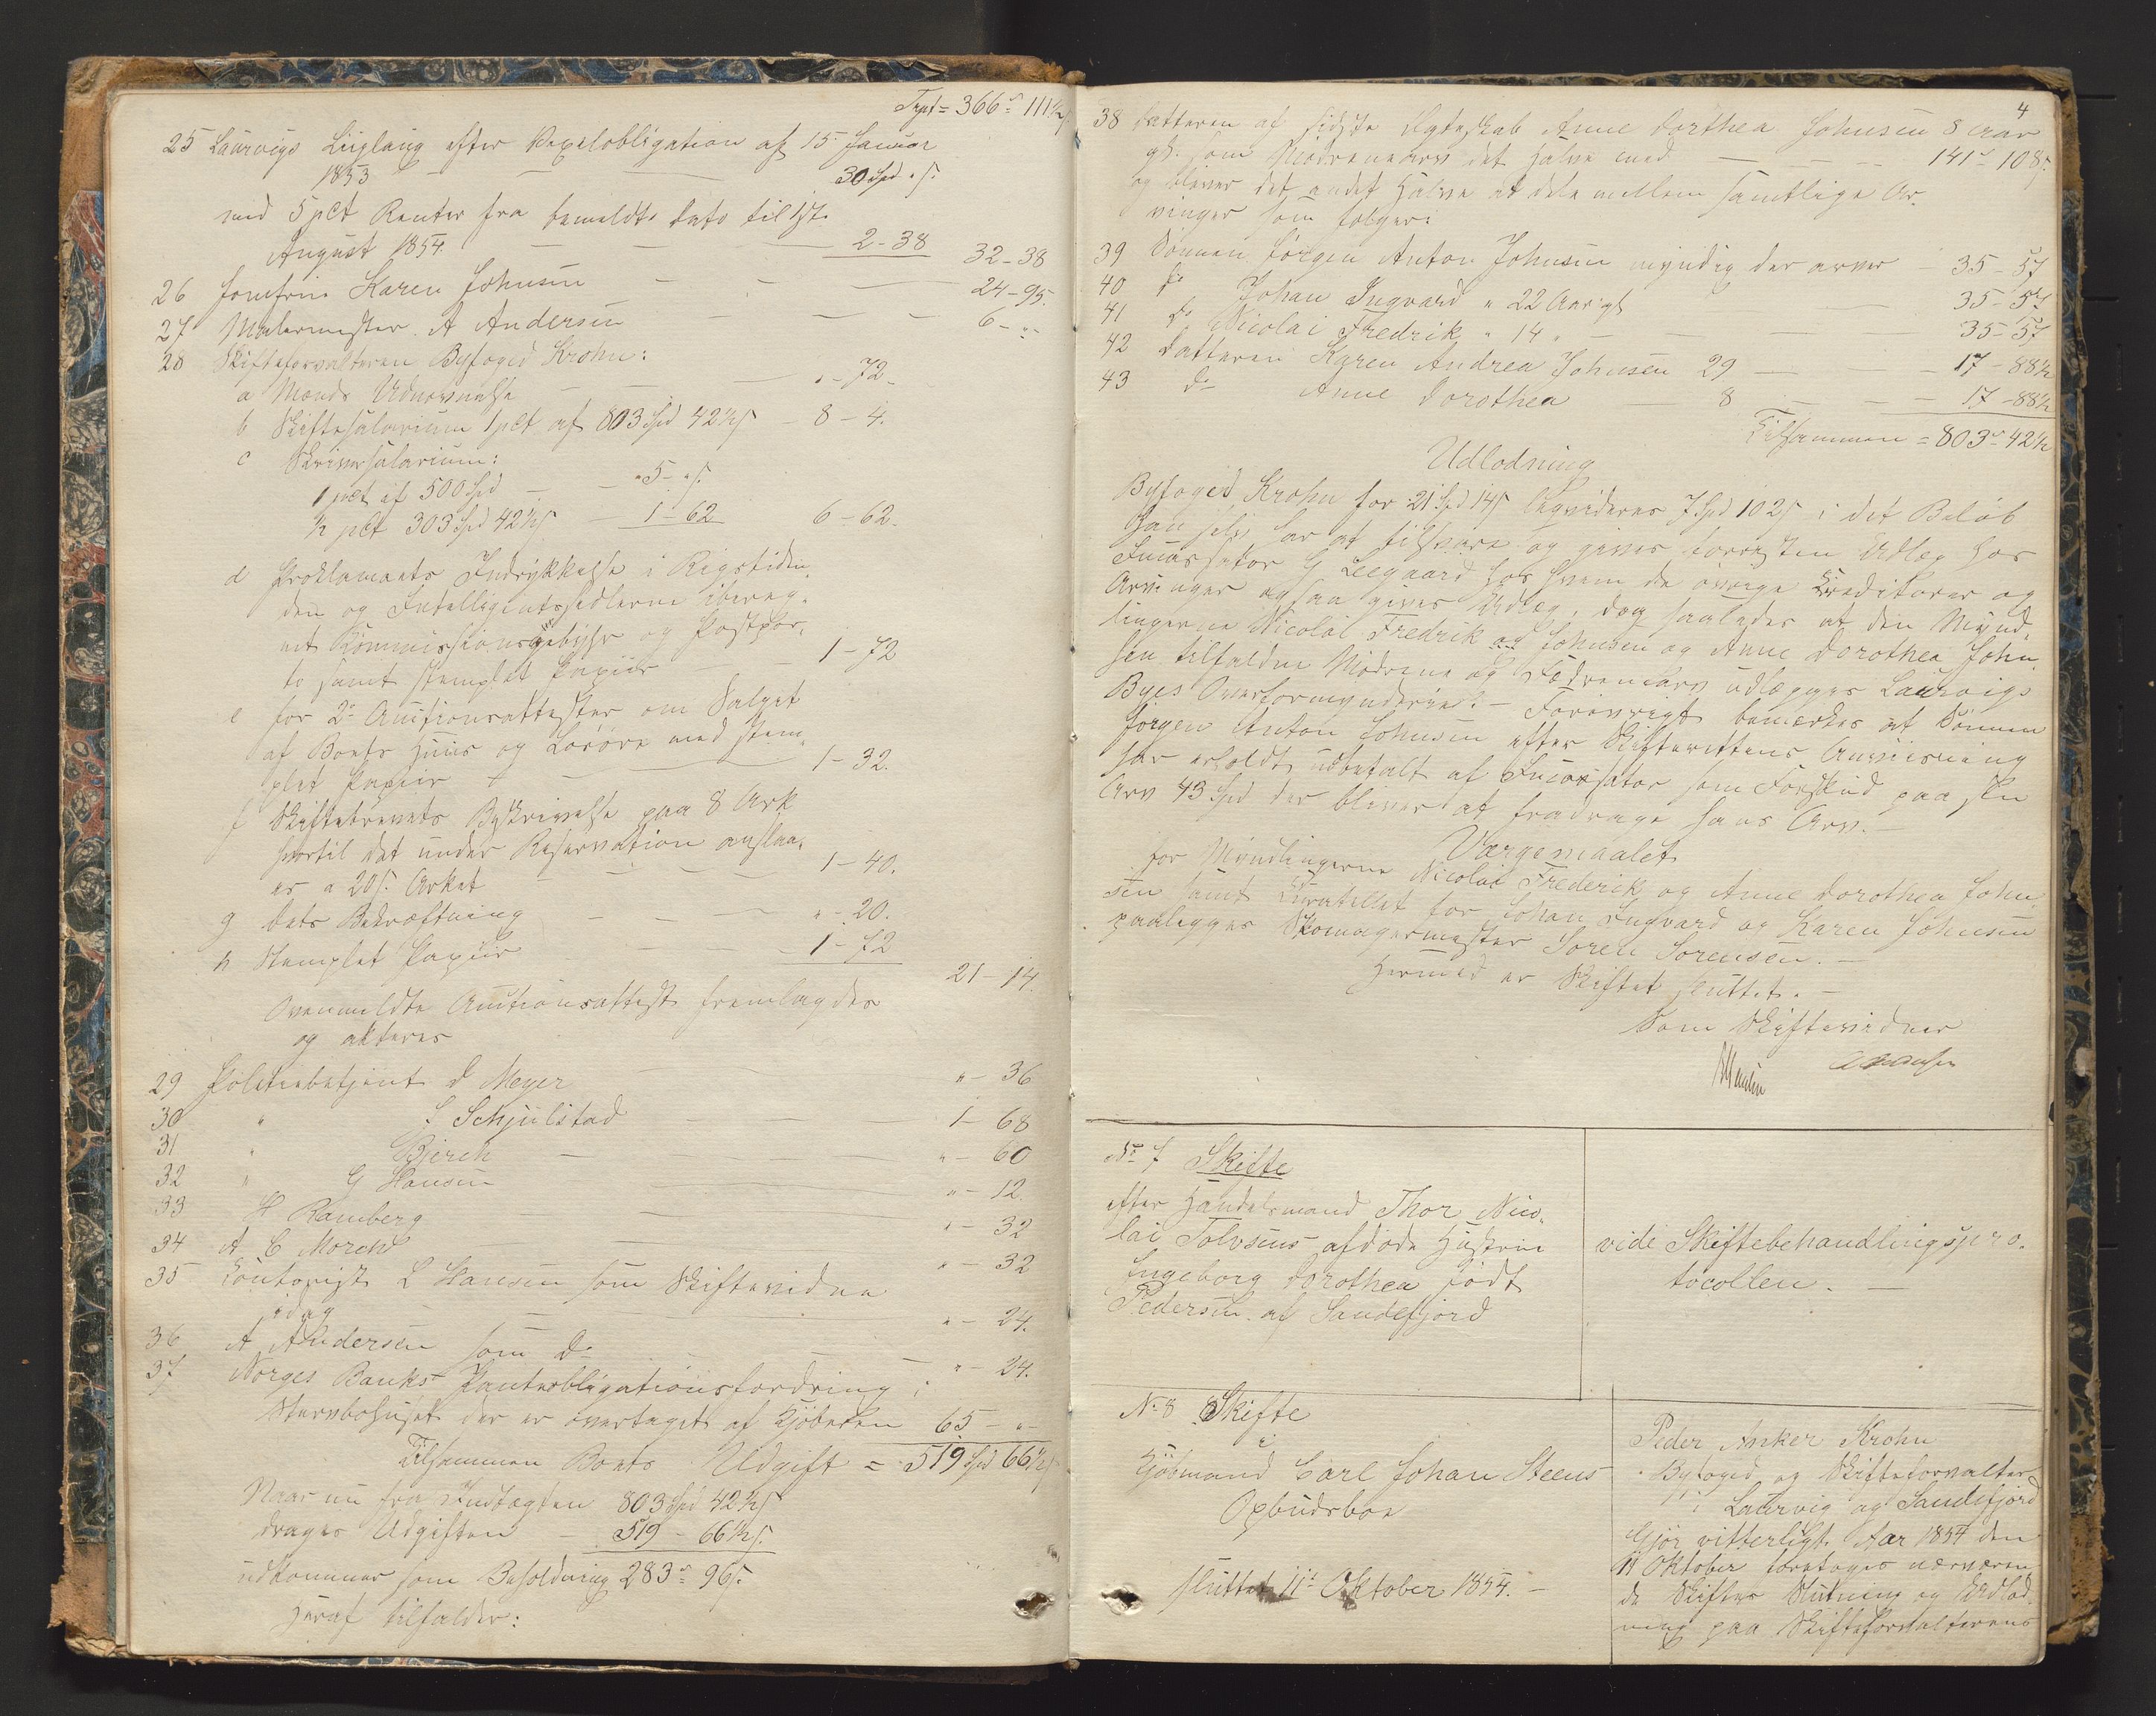 Trpt = 366 " 111½ s
25 Laurvigs Liiglaug efter Vexelobligation af 15 Januar
1853 — — — 30 Spd " s.
med 5 pct Renter fra bemeldte Dato til 1ste
August 1854 — — 2-38 32-38
26 Jomfrue Karen Johnsen — — — 24-95.
27 Malermester A Andersen — — — 6-"-
28 Skifteforvalteren Byfoged Krohn:
a Mænds Udnævnelse — — — "-72-
b Skiftesalarium 1 pct af 803 Spd 42½ s — 8-4.
c Skriversalarium:
1 pct af 500 Spd — — "5-"s.
½ pct 303 Spd 42½ s — 1-62 6-62.
d Proklamaets Indrykkelse i Rigstiden-
den og Intelligentssedlerne ibereg-
net Kommissionsgebyhr og Postpor-
to samt stemplet Papiir — — 1-72
e for 2de Auctionsattester om Salget
af Boets Huus og Løsøre med stem-
plet Papiir — — 1-32.
f Skiftebrevets Beskrivelse paa 8 Ark
hvortil det under Reservation anslaa-
es a 20 s. Arket — — — 1-40.
g dets Bekræftning — — — "-20.
h Stemplet Papiir — — 1-72
21-14.
Ovenmeldte Auctionsattest fremlagdes
og akteres
29 Politiebetjent D Meyer — — "-36
30 " S Schjulstad — — 1-68
31 " Bjerch — — "-60
32 " G Hansen — — "-12.
33 H Ramberg — — "-32
34 A C Morch — — "-32
35 Contorist L Hansen som Skiftevidne
idag — — — "-24.
36 A Andersen som Do — — "-24.
37 Norges Banks Panteobligationsfordring i
Stervbohuset der er overtaget af Kjøberen 65-"-
Tilsammen Boets Udgift = 519 Spd 66½ s
Naar nu fra Indtægten 803 Spd 42½ s
drages Udgiften — 519 - 66½ s.
udkommer som Beholdning 283 " 96 s.
Heraf tilfalder:
4
38 Datteren af sidste Ægteskab Anne Dorthea Johnsen 8 Aar
gl. som Mødrenearv det halve med — — — 141 " 108 s.
og bliver det andet Halve at dele mellem samtlige Ar-
vinger som følger:
39 Sønnen Jørgen Anton Johnsen myndig der arver — 35-57
40 Do Johan Ingvard " 22 Aar gl — — 35-57
41 Do Nicolai Fredrik " 14 " — — 35-57
42 Datteren Karen Andrea Johnsen 29 — — 17-88½
43 Do Anne Dorothea — 8 — — 17-88½
Tilsammen = 803 " 42½
Udlodning
Byfoged Krohn for 21 Spd 14 s liqvideres 7 Spd 102 s i det Beløb
han selv har at tilsvare og gives forresten Udlæg hos
Incassator G Leegaard hos hvem de øvrige Kreditorer og
Arvinger ogsaa gives Udlæg, dog saaledes at den Mynd-
lingerne Nicolai Fredrik Johnsen og Anne Dorothea John-
sen tilfaldne Mødrene og Fædrenearv udlægges Laurvigs
Byes Overformynderie. — Forøvrigt bemærkes at Sønnen
Jørgen Anton Johnsen efter Skifterettens Anviisning
har erholdt udbetalt af Incassator som Forskud paa sin
Arv 43 Spd der bliver at fradrage hans Arv. —
Værgemaalet
for Myndlingerne Nicolai Frederik og Anne Dorothea John-
sen samt Curatellet for Johan Ingvard og Karen Johnsen
paalegges Skomagermester Søren Sørensen. —
Hermed er Skiftet sluttet. —
Som Skiftevidner
No 7 Skifte
efter Handelsmand Thor Nico-
lai Tolvsens afdøde Hustrue
Ingeborg Dorothea født
Pedersen af Sandefjord
vide Skiftebehandlingspro-
tocollen. —
No 8 Skifte
i
Kjøbmand Carl Johan Steens
Opbudsboe
sluttet 11te Oktober 1854. —
Peder Anker Krohn
Byfoged og Skifteforvalter
i Laurvig og Sandefjord
Gjør vitterligt Aar 1854 den
11 Oktober foretoges nærværen-
de Skiftes Slutning og Udlod-
ning paa Skifteforvalterens